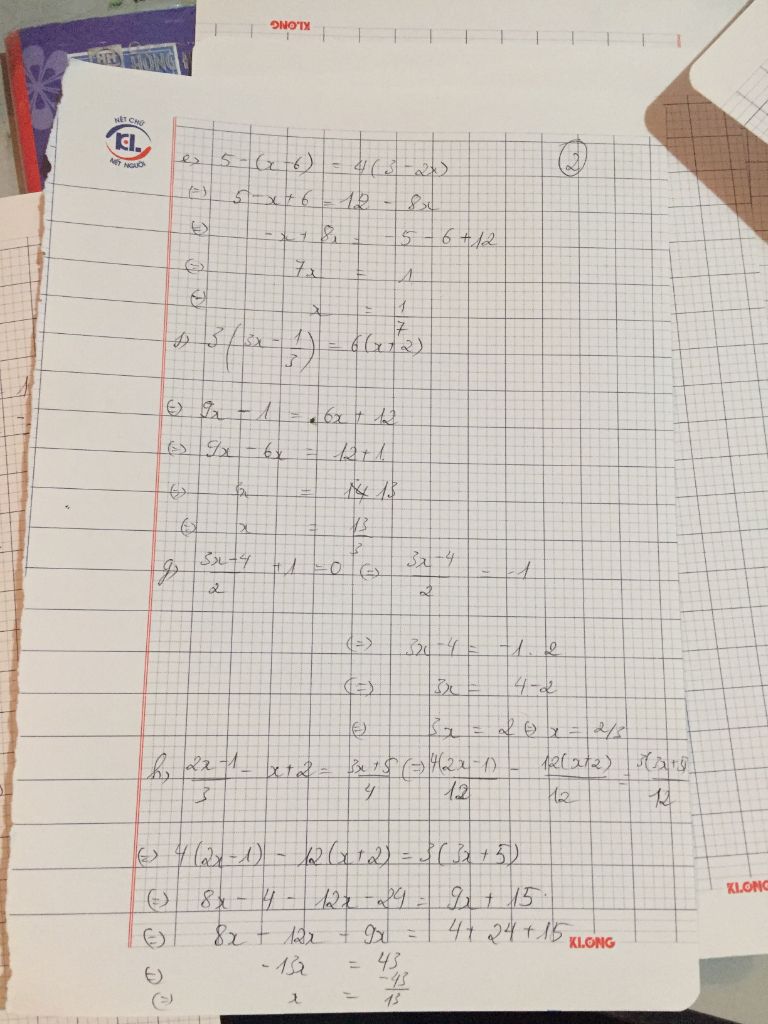 KLONG
NÉT CHỮ
KL
NẾT NGƯỜI
②
e) 5-(x-6) = 4(3-2x)
(=) 5-x+6 = 12 - 8x
(=) -x+8x = -5-6+12
(=) 7x = 1
(=) x = 1/7
f) 3(3x - 1/3) = 6(x+2)
(=) 9x - 1 = 6x + 12
(=) 9x - 6x = 12+1
(=) 3x = 13
(=) x = 13/3
g) (3x-4)/2 + 1 = 0 (=) (3x-4)/2 = -1
(=) 3x-4 = -1.2
(=) 3x = 4-2
(=) 3x = 2 (=) x = 2/3
h) (2x-1)/3 - x+2 = (3x+5)/4 (=) 4(2x-1)/12 - 12(x+2)/12 = 3(3x+5)/12
(=) 4(2x-1) - 12(x+2) = 3(3x+5)
(=) 8x - 4 - 12x - 24 = 9x + 15
(=) 8x - 12x - 9x = 4+ 24 +15
KLONG
(=) -13x = 43
(=) x = -43/13
KLONG